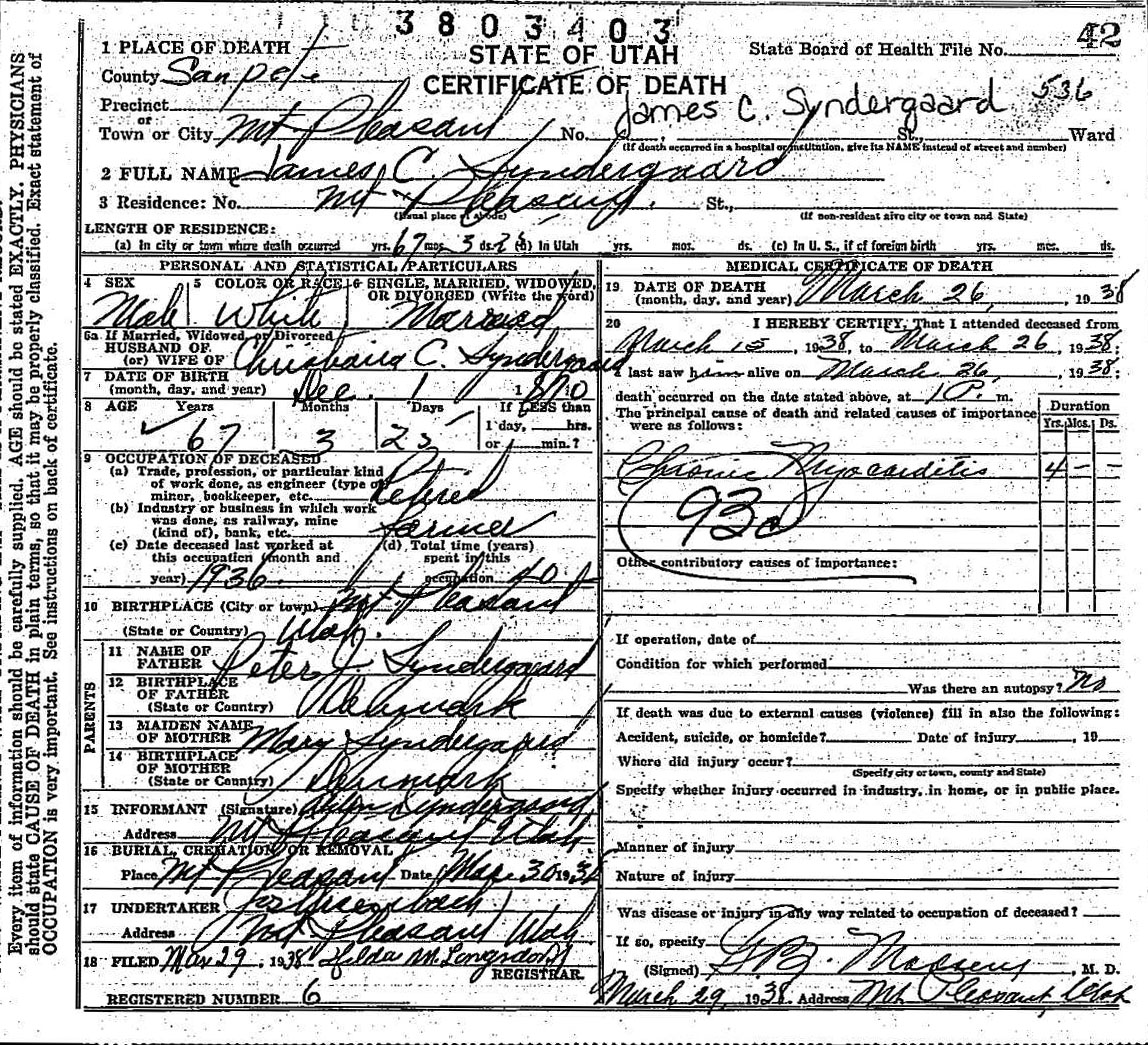 3803403
42
STATE OF UTAH
CERTIFICATE OF DEATH
State Board of Health File No.
1 PLACE OF DEATH
County Sanpete
Precinct
or
Town or City Mt Pleasant No. St., Ward
James C. Syndergaard 536
(If death occurred in a hospital or institution, give its NAME instead of street and number)
2 FULL NAME James C. Syndergaard
3 Residence: No. Mt Pleasant. St.,
(Usual place of abode) (If non-resident give city or town and State)
LENGTH OF RESIDENCE:
(a) In city or town where death occurred yrs. 67 mos. 3 ds. (b) In Utah yrs. mos. ds. (c) In U. S., if of foreign birth yrs. mos. ds.
PERSONAL AND STATISTICAL PARTICULARS
4 SEX 5 COLOR OR RACE 6 SINGLE, MARRIED, WIDOWED,
OR DIVORCED (Write the word)
Male White Married
6a If Married, Widowed, or Divorced
HUSBAND OF
(or) WIFE OF C. Syndergaard
7 DATE OF BIRTH
(month, day, and year) Dec. 1 1870
8 AGE Years Months Days If LESS than
1 day, hrs.
or min.?
67 3 25
9 OCCUPATION OF DECEASED
(a) Trade, profession, or particular kind
of work done, as engineer (type of
miner, bookkeeper, etc. Retired
(b) Industry or business in which work
was done, as railway, mine
(kind of), bank, etc. farmer
(c) Date deceased last worked at (d) Total time (years)
this occupation (month and spent in this
year) 1936 occupation 40
10 BIRTHPLACE (City or town) Mt Pleasant
(State or Country) Utah.
PARENTS
11 NAME OF
FATHER Peter J Syndergaard
12 BIRTHPLACE
OF FATHER
(State or Country) Denmark
13 MAIDEN NAME
OF MOTHER Mary Syndergaard
14 BIRTHPLACE
OF MOTHER
(State or Country) Denmark
15 INFORMANT (Signature) Syndergaard
Address Mt Pleasant Utah
16 BURIAL, CREMATION OR REMOVAL
Place Mt Pleasant Date Mar. 30 1938
17 UNDERTAKER
Address Mt Pleasant Utah
18 FILED Mar 29, 1938 Hilda M. Longsdorf
REGISTRAR.
REGISTERED NUMBER 6
MEDICAL CERTIFICATE OF DEATH
19 DATE OF DEATH
(month, day, and year) March 26, 1938
20 I HEREBY CERTIFY, That I attended deceased from
March 15, 1938, to March 26, 1938:
I last saw him alive on March 26, 1938:
death occurred on the date stated above, at 1 P. m.
The principal cause of death and related causes of importance
were as follows:
Duration
Yrs. Mos. Ds.
Chronic Myocarditis 4 - -
Other contributory causes of importance:
If operation, date of
Condition for which performed
Was there an autopsy? No
If death was due to external causes (violence) fill in also the following:
Accident, suicide, or homicide? Date of injury , 19
Where did injury occur?
(Specify city or town, county and State)
Specify whether injury occurred in industry, in home, or in public place.
Manner of injury
Nature of injury
Was disease or injury in any way related to occupation of deceased?
If so, specify
(Signed) , M. D.
March 29, 1938 Address Mt Pleasant, Utah
Every item of information should be carefully supplied. AGE should be stated EXACTLY. PHYSICIANS
should state CAUSE OF DEATH in plain terms, so that it may be properly classified. Exact statement of
OCCUPATION is very important. See instructions on back of certificate.